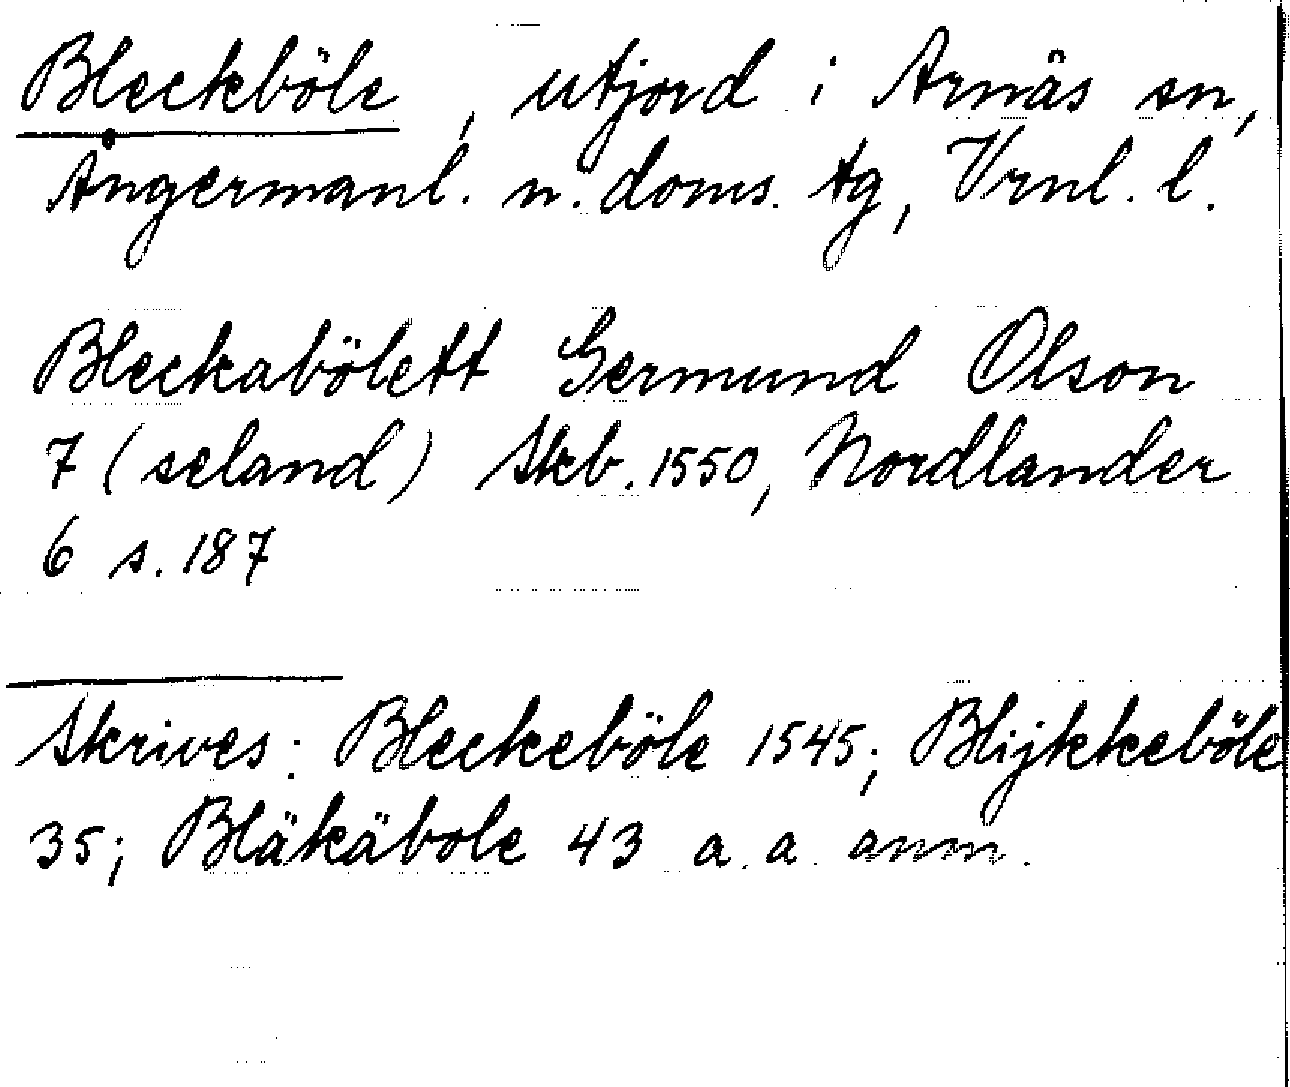 Bleckeböle, utjord i Arnäs sn,
Ångermanl. n. doms. tg, Vrnl. l.
Bleckabölett Germund Olson
7 (seland) Skb. 1550, Nordlander
6 s. 187
Skrives: Bleckeböle 1545; Blijkkeböle
35; Bläkäbole 43 a. a. anm.